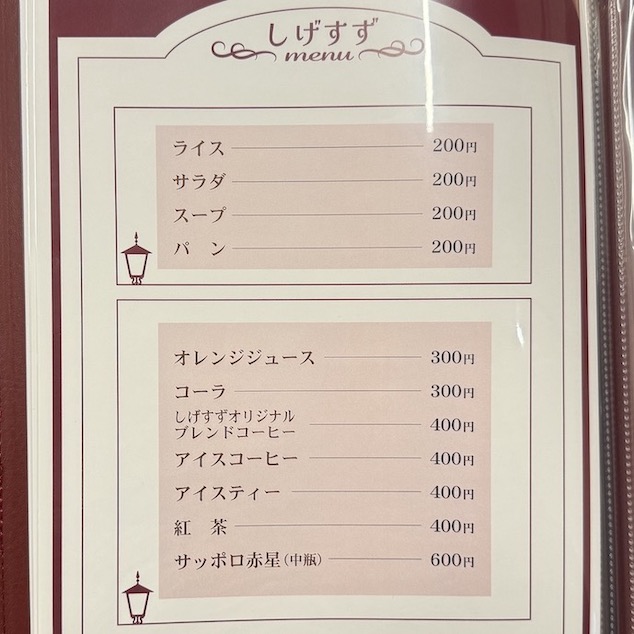 しげすず
menu
ライス 200円
サラダ 200円
スープ 200円
パン 200円
オレンジジュース 300円
コーラ 300円
しげすずオリジナル
ブレンドコーヒー 400円
アイスコーヒー 400円
アイスティー 400円
紅茶 400円
サッポロ赤星(中瓶) 600円